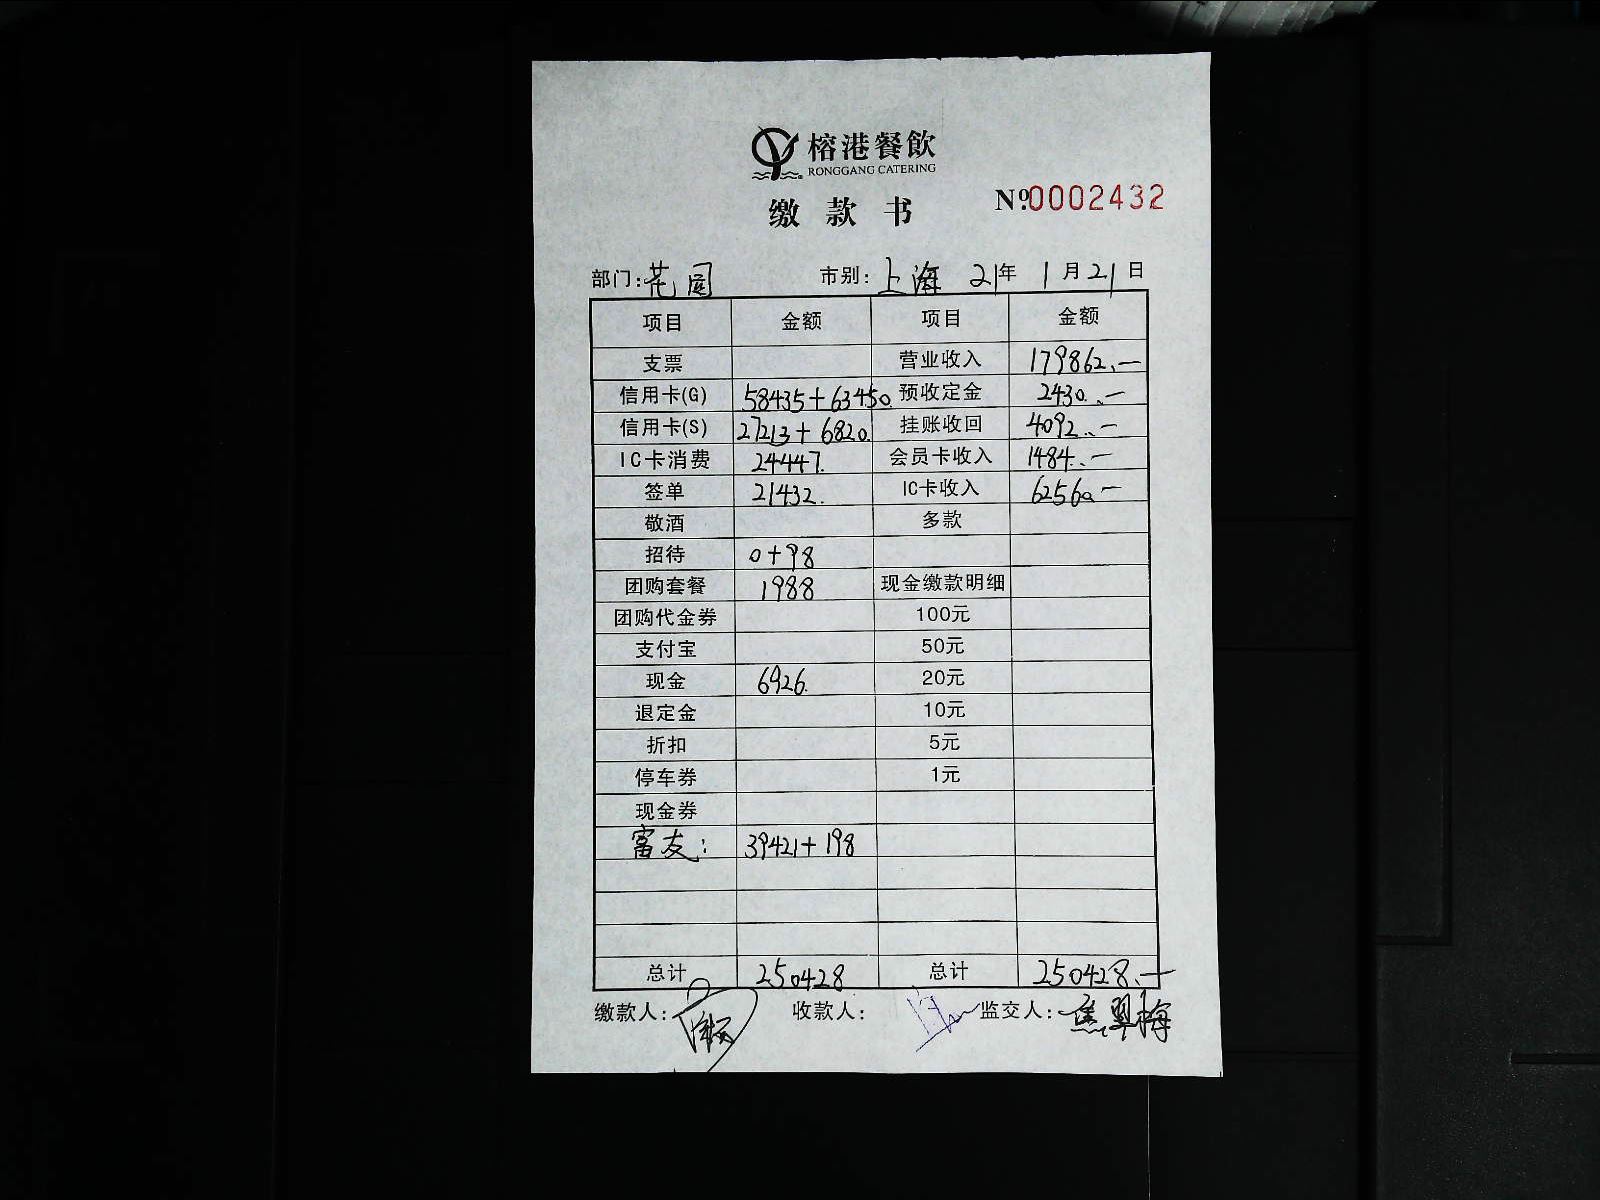 榕港餐飲
RONGGANG CATERING
缴款书 №0002432
部门:花园 市别:上海 21年 1月21日
项目 金额 项目 金额
支票 营业收入 179862.一
信用卡(G) 58435+63450. 预收定金 2430.一
信用卡(S) 27213+6820. 挂账收回 4092.一
IC卡消费 24447. 会员卡收入 1484.一
签单 21432. IC卡收入 62560一
敬酒 多款
招待 0+98
团购套餐 1988 现金缴款明细
团购代金券 100元
支付宝 50元
现金 6926. 20元
退定金 10元
折扣 5元
停车券 1元
现金券
富友: 39421+198
总计 250428 总计 250428.一
缴款人: 收款人: 监交人: